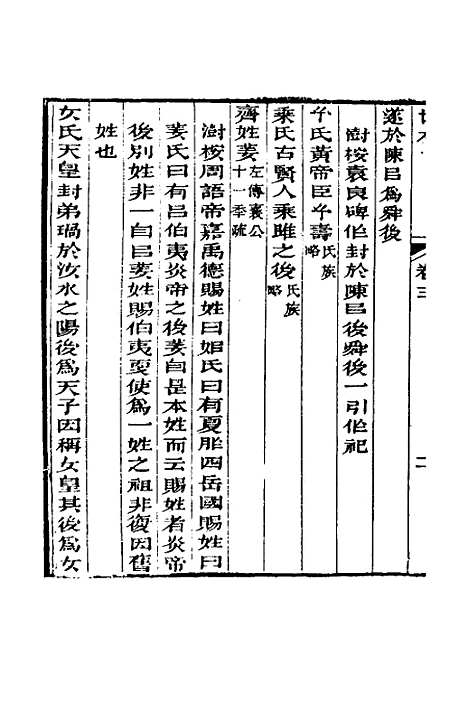 卷三
二
遂於陳已為舜後
澍桉袁良碑作封於陳已後舜後一引作祀
仐氏黃帝臣仐壽氏族略
乘氏古賢人乘雎之後氏族略
齊姓姜左傳襄公十一年疏
澍桉周語帝嘉禹德賜姓曰姒氏曰有夏胙四岳國賜姓曰
姜氏曰有呂伯夷炎帝之後姜自是本姓而云賜姓者炎帝
後別姓非一自呂姜姓賜伯夷更使為一姓之祖非復因舊
姓也
女氏天皇封弟瑒於汝水之陽後為天子因稱女皇其後為女